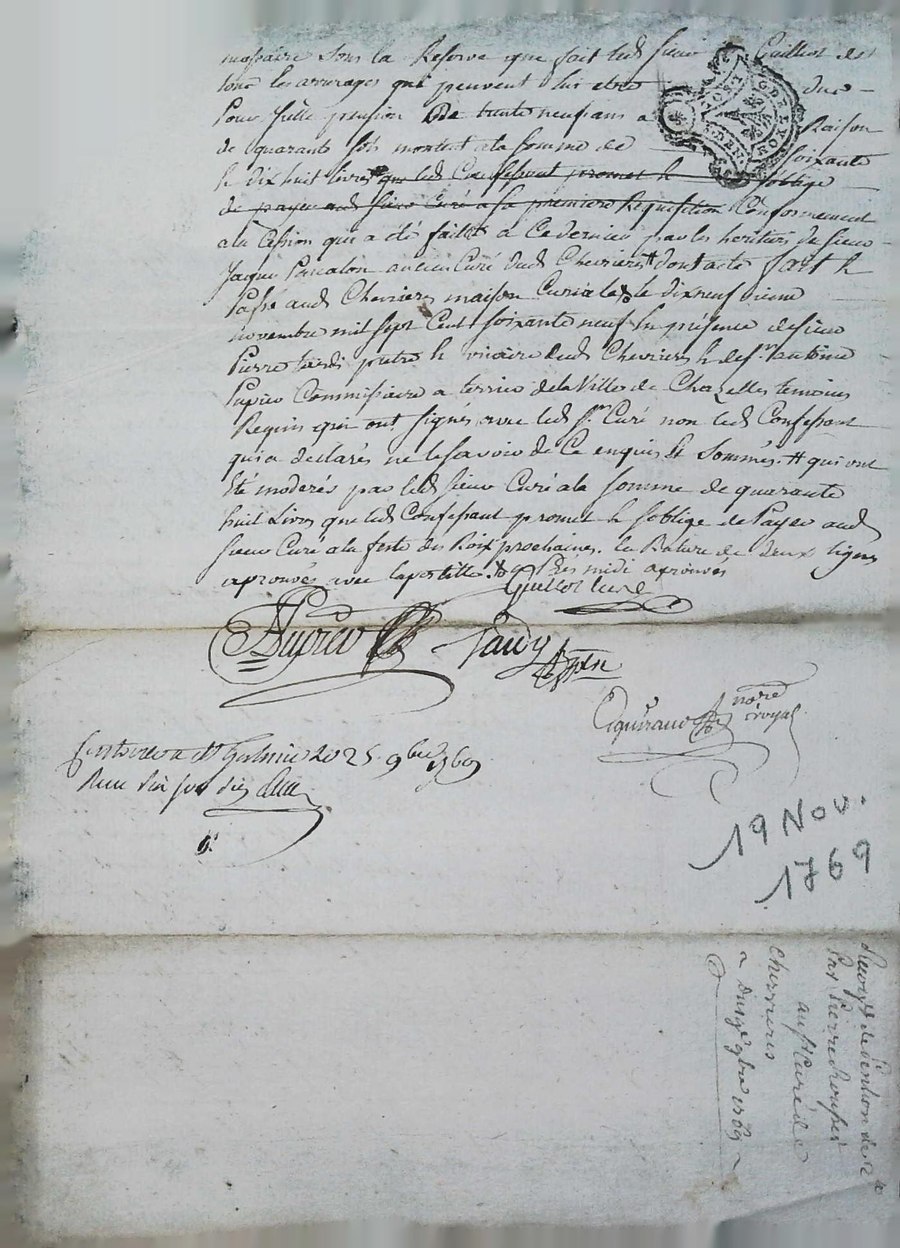 nossaire sous la Reserve que fait led sieur Guilliot de
tous les arrerages qui peuvent lui etre dus
Pour juelle pension de trente neuf ans a Raison
de quarante sols montent ala somme de soixante
& dix huit livres que led Confessant promet & soblige
de payer aud sieur Curé a sa premiere Requisition Conformement
ala Cession qui a été faitte a Ce dernier par les heritiers de sieur
Jaque Pancalon ancien Curé dud Chevrieres dont acte fait &
Passé aud Chevrieres maison Curialle le dixneuvieme
novembre mil sept Cent soixante neuf En présence de sieur
Pierre tardi pretre & vicaire dud Chevrieres & de sr. antoine
Pupier Commissaire a terrier dela Ville de Chazelles temoins
Requis qui ont signés avec led sr. Curé non led Confessant
qui a declarés ne le savoir de Ce enquis & sommés. # qui ont
été moderés par led sieur Curé ala somme de quarante
huit Livres que led Confessant promet & soblige de Payer aud
sieur Curé ala feste des Roix prochaines. la Rature de deux lignes
aprouvés avec lapostille. & apres midi aprouvés
Guilliot curé
APupier
Tardy
nore royal
a st Galmier le 25 9bre 1769
Receu six sols dix
19 Nov.
1769
de Pention de
Par Pierre
au sr Curé de
Cherrieres
a du 19e 9bre 1769